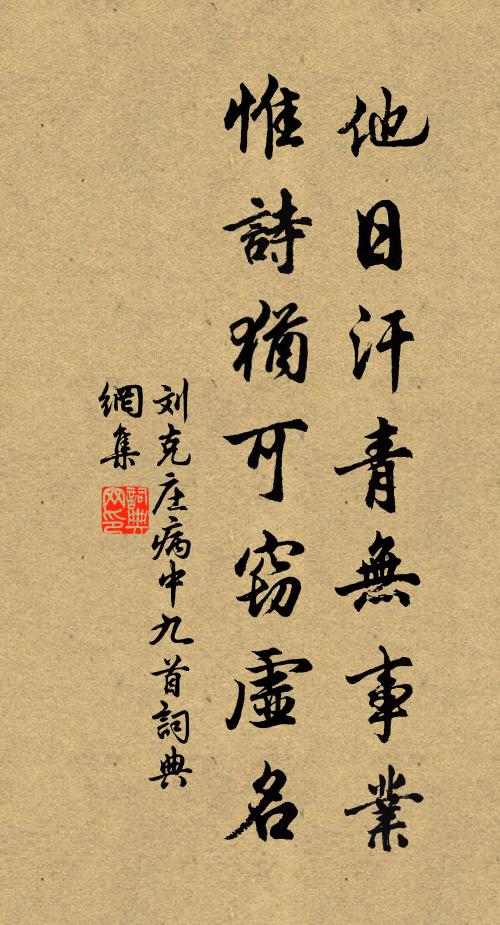 他日汗青無事業
惟詩猶可窃虛名
刘克庄病中九首詞典
網集
詞典
网印